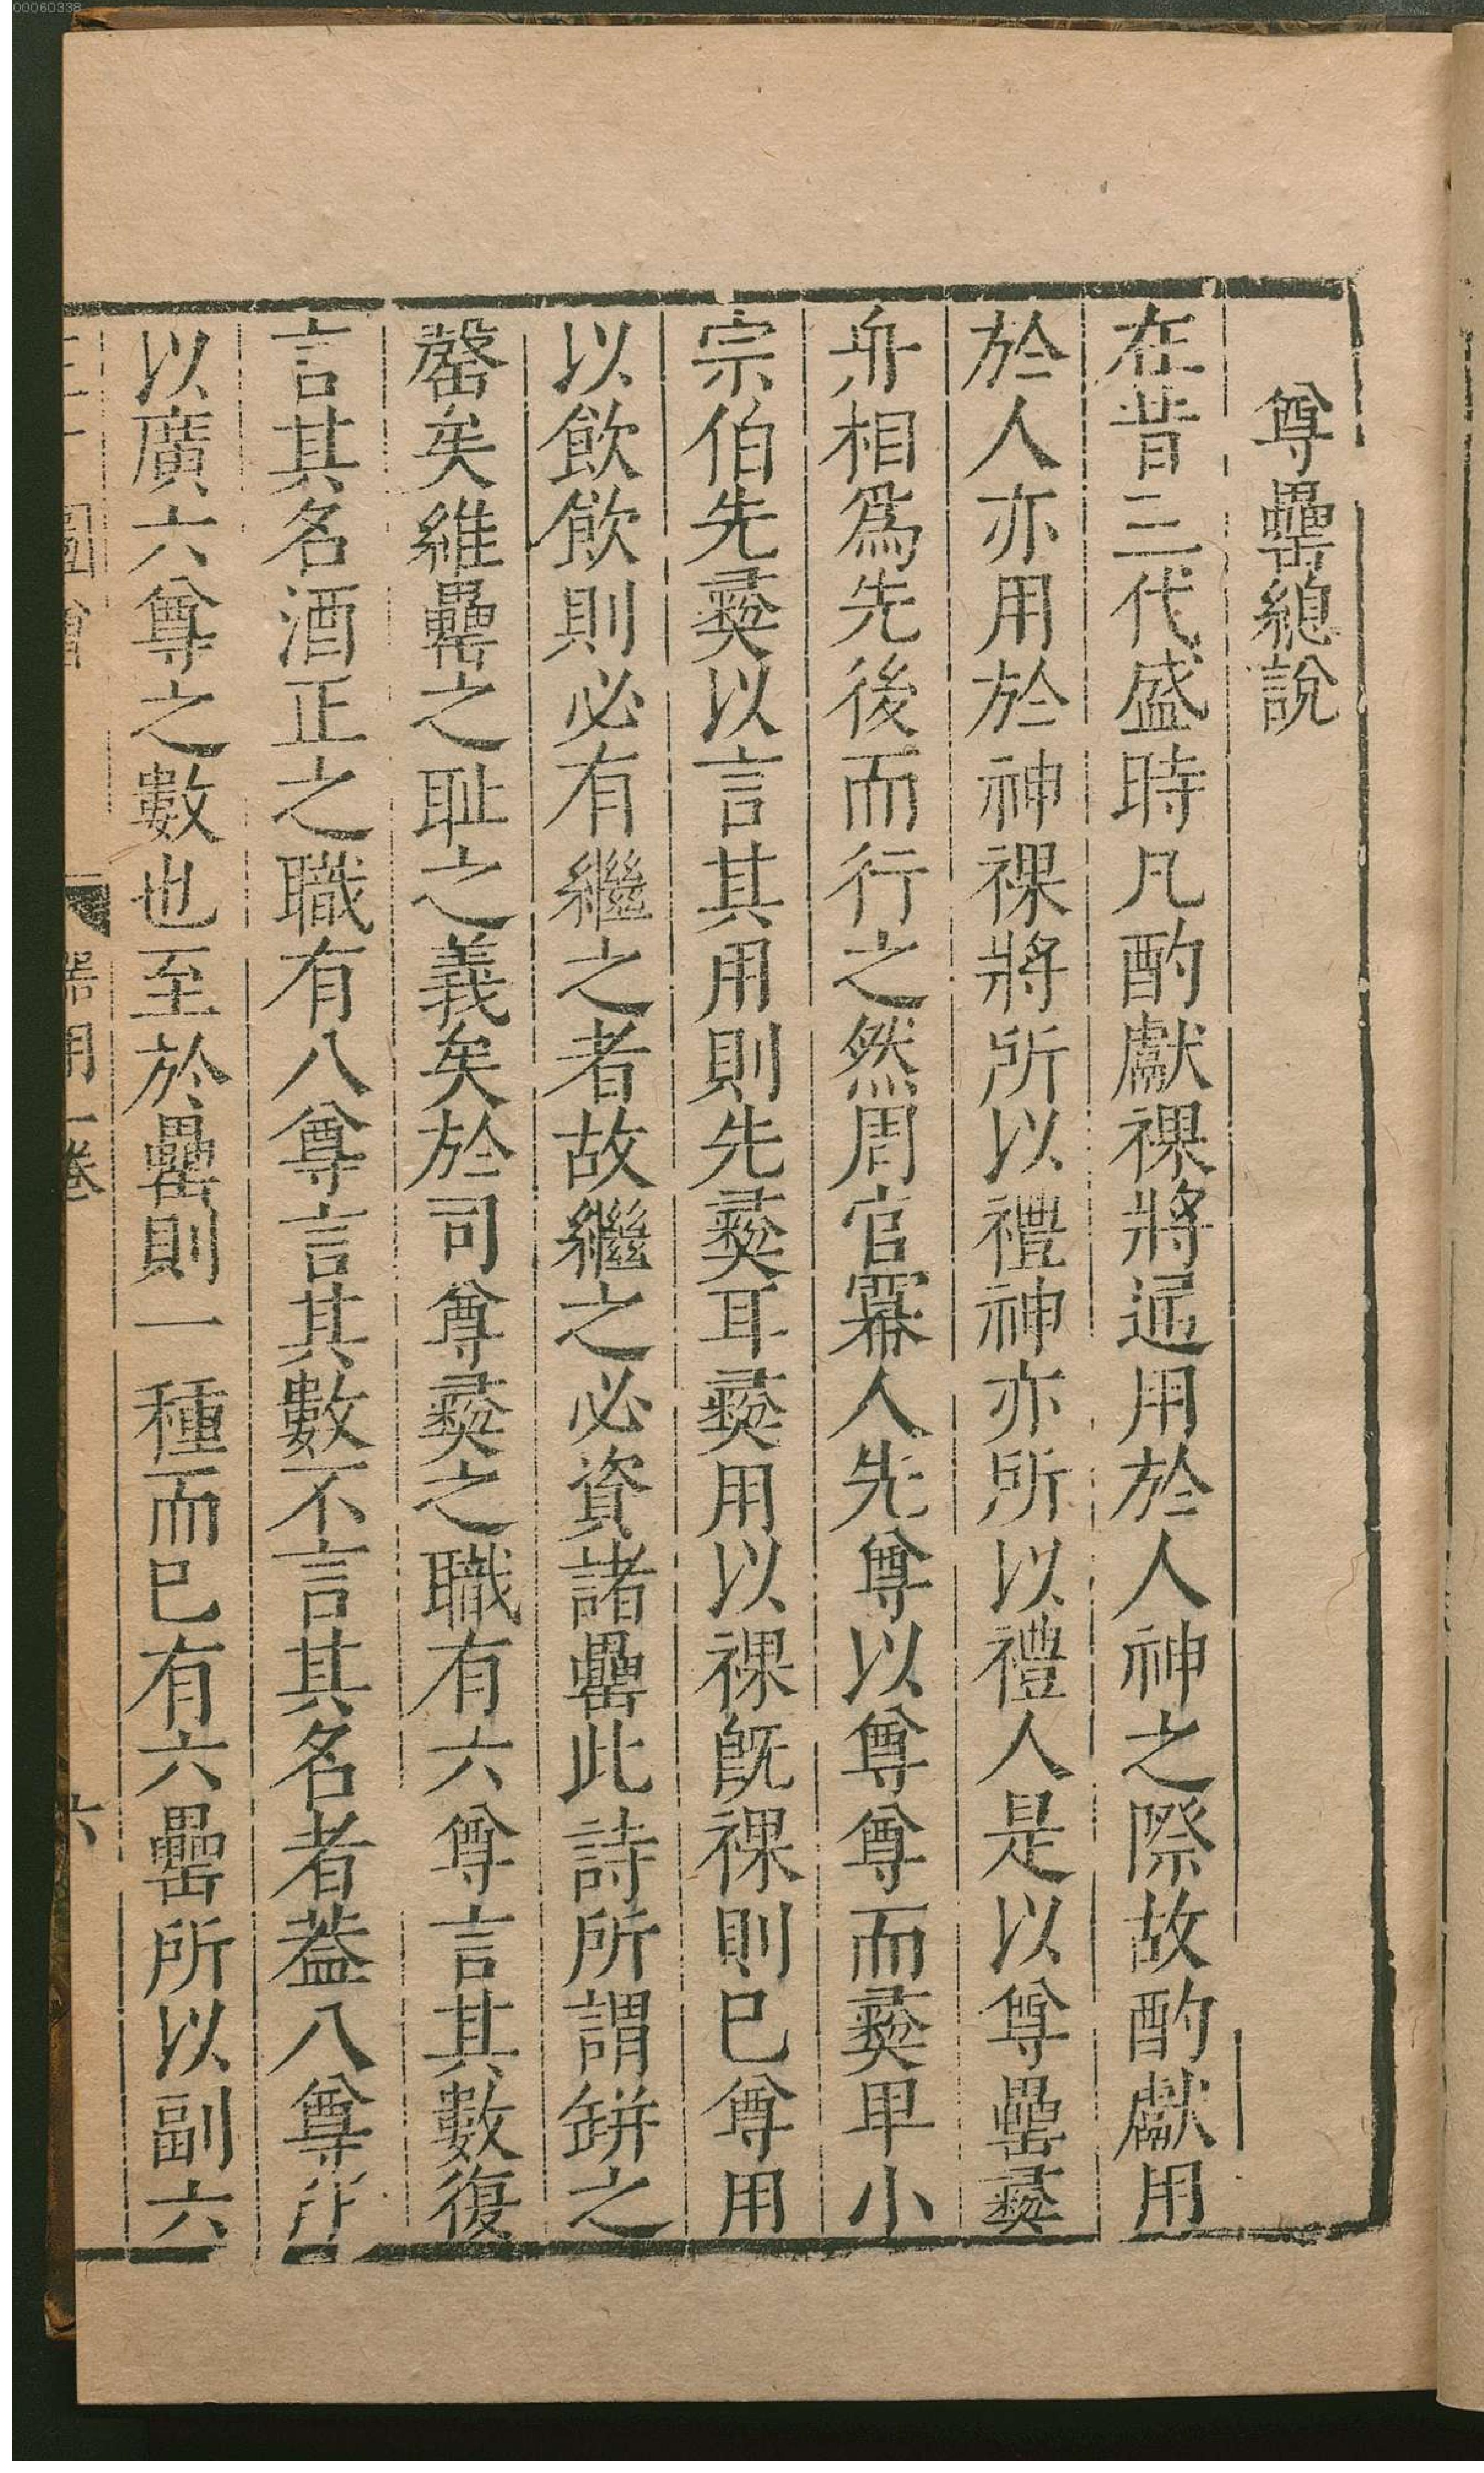 00060338
尊罍總說
在昔三代盛時凡酌獻祼將通用於人神之際故酌獻用
於人亦用於神祼將所以禮神亦所以禮人是以尊罍彝
舟相爲先後而行之然周官冪人先尊以尊尊而彝卑小
宗伯先彝以言其用則先彝耳彝用以祼旣祼則已尊用
以飮飮則必有繼之者故繼之必資諸罍此詩所謂缾之
罄矣維罍之耻之義矣於司尊彝之職有六尊言其數復
言其名酒正之職有八尊言其數不言其名者葢八尊所
以廣六尊之數也至於罍則一種而已有六罍所以副六
圖會
器用一卷
六